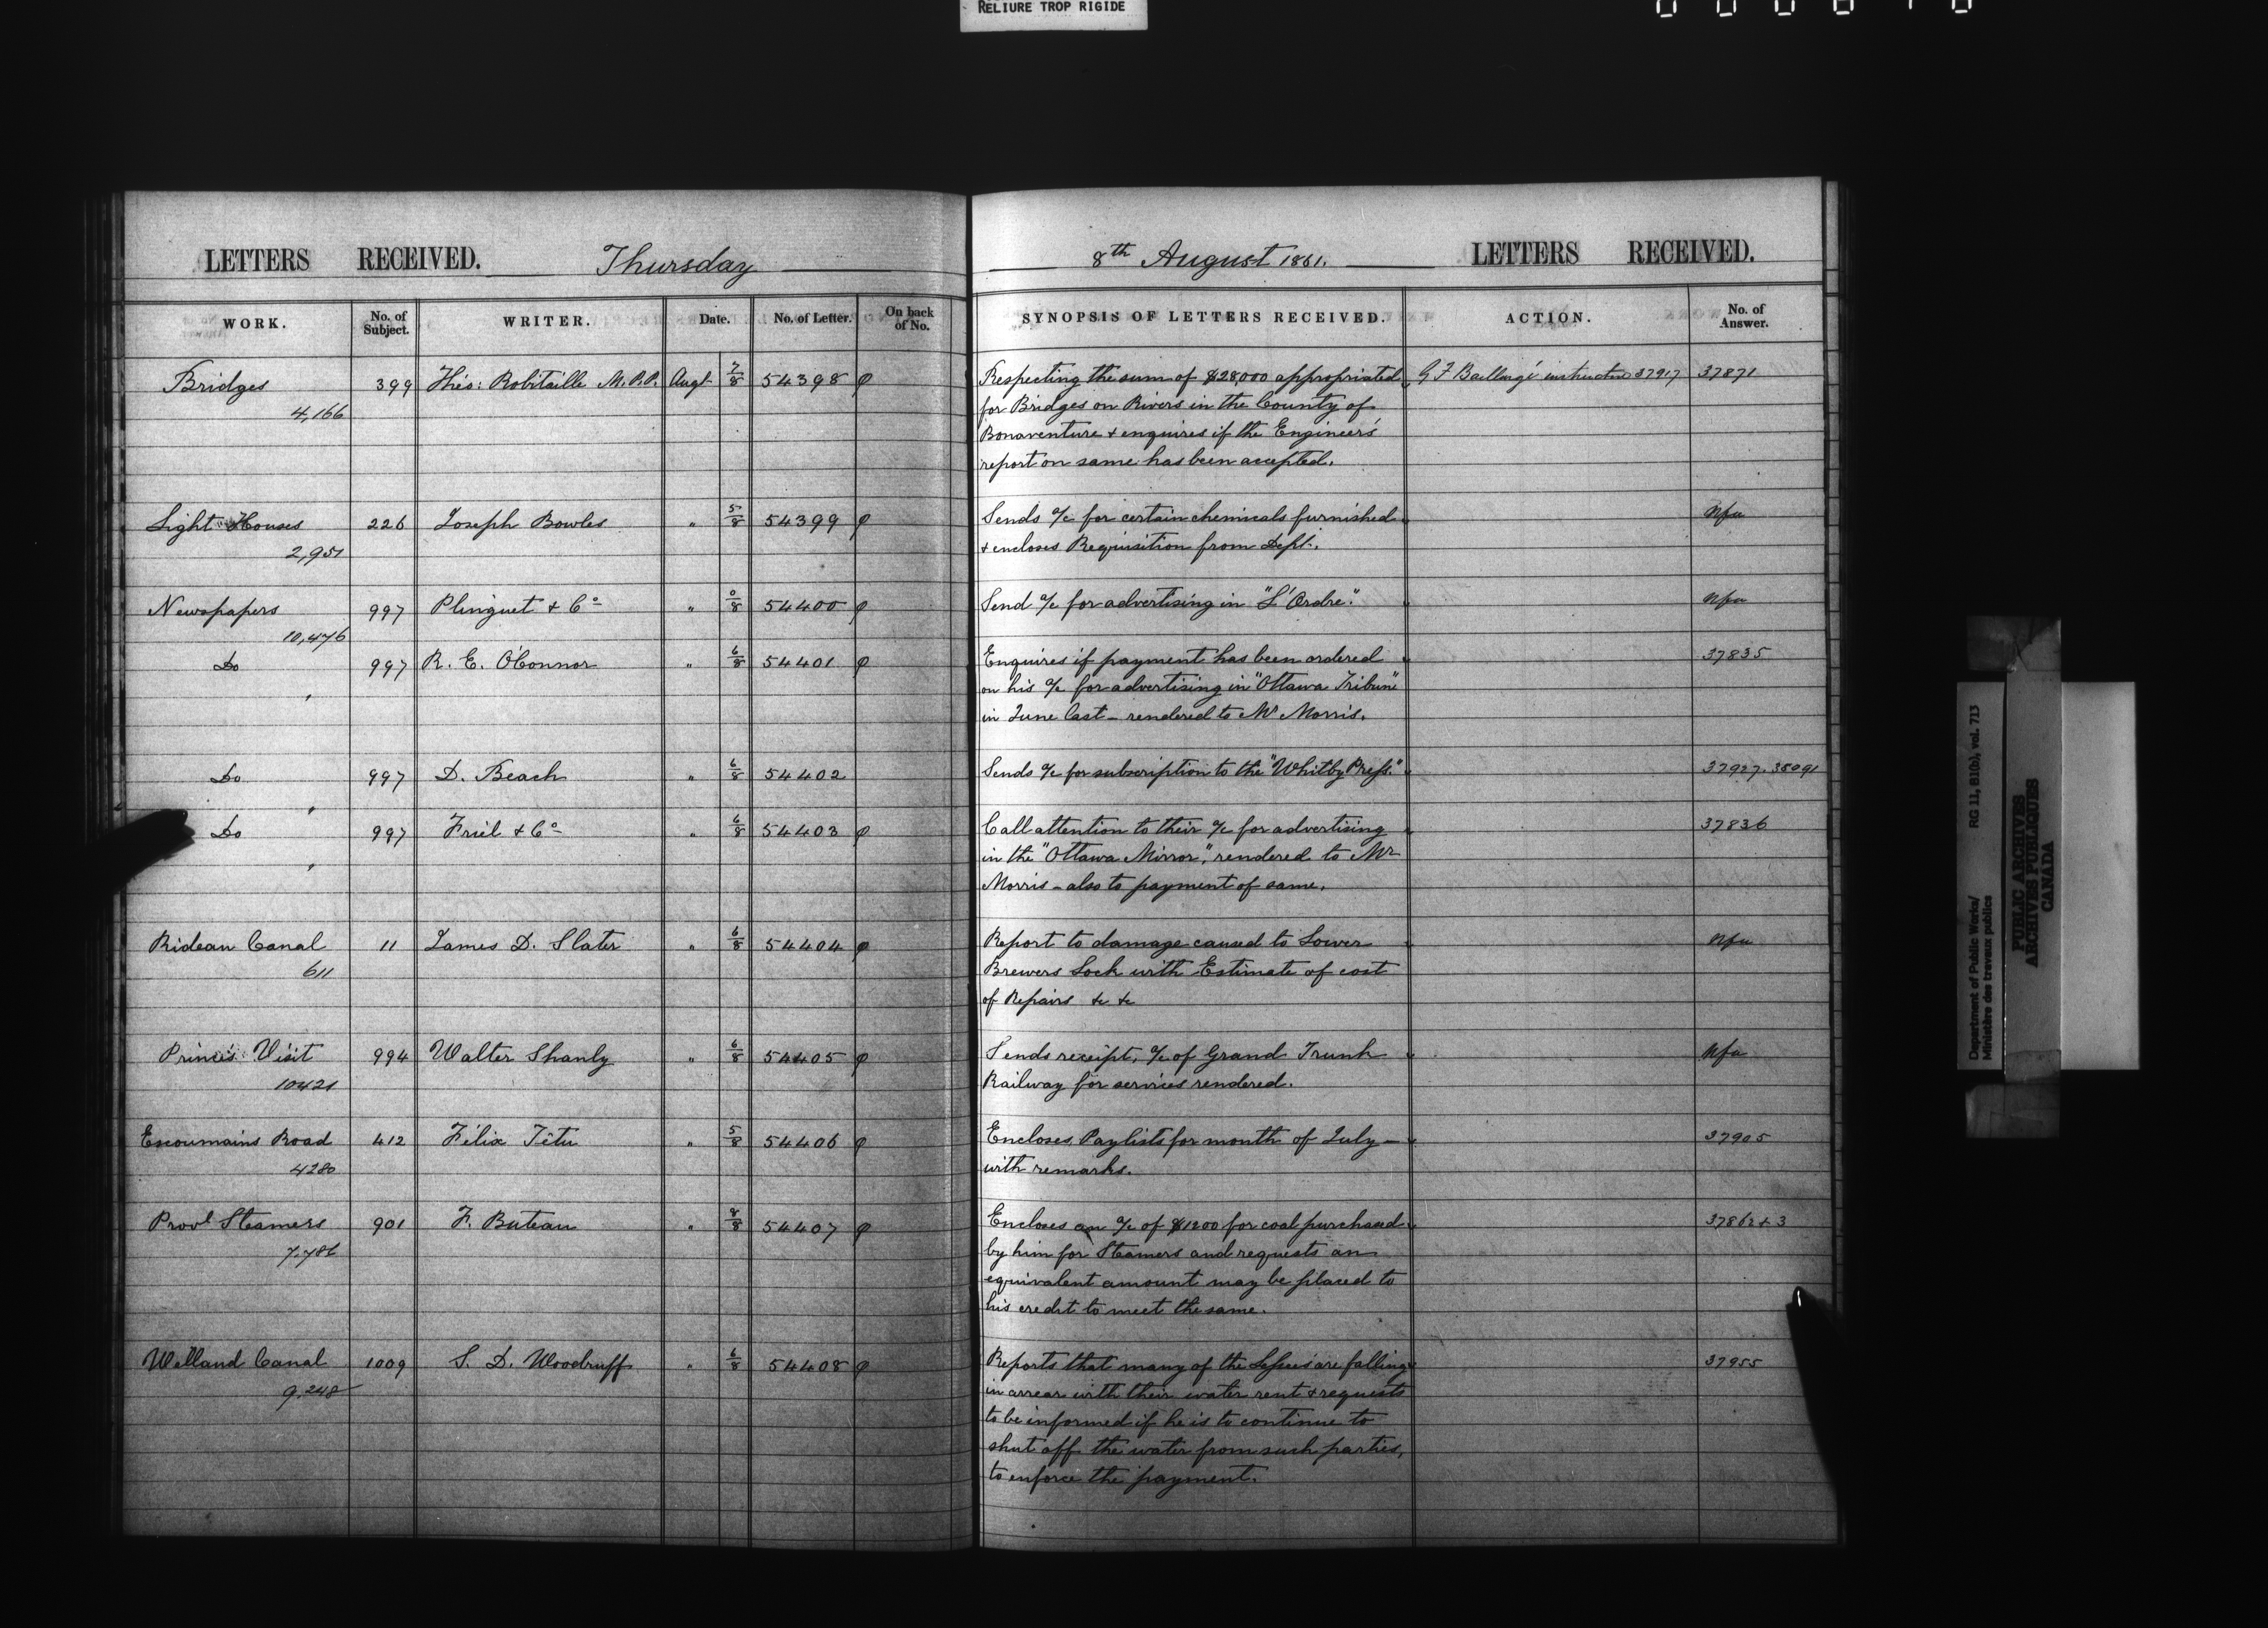 RELIURE TROP RIGIDE
LETTERS RECEIVED. Thursday
8th August 1861. LETTERS RECEIVED.
WORK. No. of Subject. WRITER. Date. No. of Letter. On back of No. SYNOPSIS OF LETTERS RECEIVED. ACTION. No. of Answer.
Bridges 399 Théo: Robitaille M.P.P. Augt 7/8 54398 φ Respecting the sum of $28,000 appropriated G F Baillargé instructed 37917 37871
4,166 for Bridges on Rivers in the County of
Bonaventure + enquires if the Engineer's
report on same has been accepted.
Light Houses 226 Joseph Bowles " 5/8 54399 φ Sends a/c for certain chemicals furnished Nfa
2,951 + encloses Requisition from Dept.
Newspapers 997 Plinguet + Co " 54400 φ Send a/c for advertising in "L'Ordre". Nfa
10,476
Do 997 R. E. O'Connor " 6/8 54401 φ Enquires if payment has been ordered 37835
" on his a/c for advertising in "Ottawa Tribune"
in June last - rendered to Mr Morris.
Do 997 D. Beach " 6/8 54402 Sends a/c for subscription to the "Whitby Press." 37927. 38091
"
Do 997 Friel + Co " 6/8 54403 φ Call attention to their a/c for advertising 37836
" in the "Ottawa Mirror", rendered to Mr
Morris - also to payment of same.
Rideau Canal 11 James D. Slater " 6/8 54404 φ Report to damage caused to Lower Nfa
611 Brewers Lock with Estimate of cost
of Repairs &c &c
Prince's Visit 994 Walter Shanly " 6/8 54405 φ Sends receipt, a/c of Grand Trunk Nfa
10421 Railway for services rendered.
Escoumains Road 412 Félix Têtu " 5/8 54406 φ Encloses Paylists for month of July - 37905
4280 with remarks.
Provl Steamers 901 F. Buteau " 8/8 54407 φ Encloses an a/c of $1200 for coal purchased 37862 + 3
7,786 by him for Steamers and requests an
equivalent amount may be placed to
his credit to meet the same.
Welland Canal 1009 S. D. Woodruff " 6/8 54408 φ Reports that many of the Lessees are falling 37955
9,248 in arrear with their water rent + requests
to be informed if he is to continue to
shut off the water from such parties,
to enforce the payment.
Department of Public Works/ RG 11, B1(b), vol. 713
Ministère des travaux publics
PUBLIC ARCHIVES
ARCHIVES PUBLIQUES
CANADA